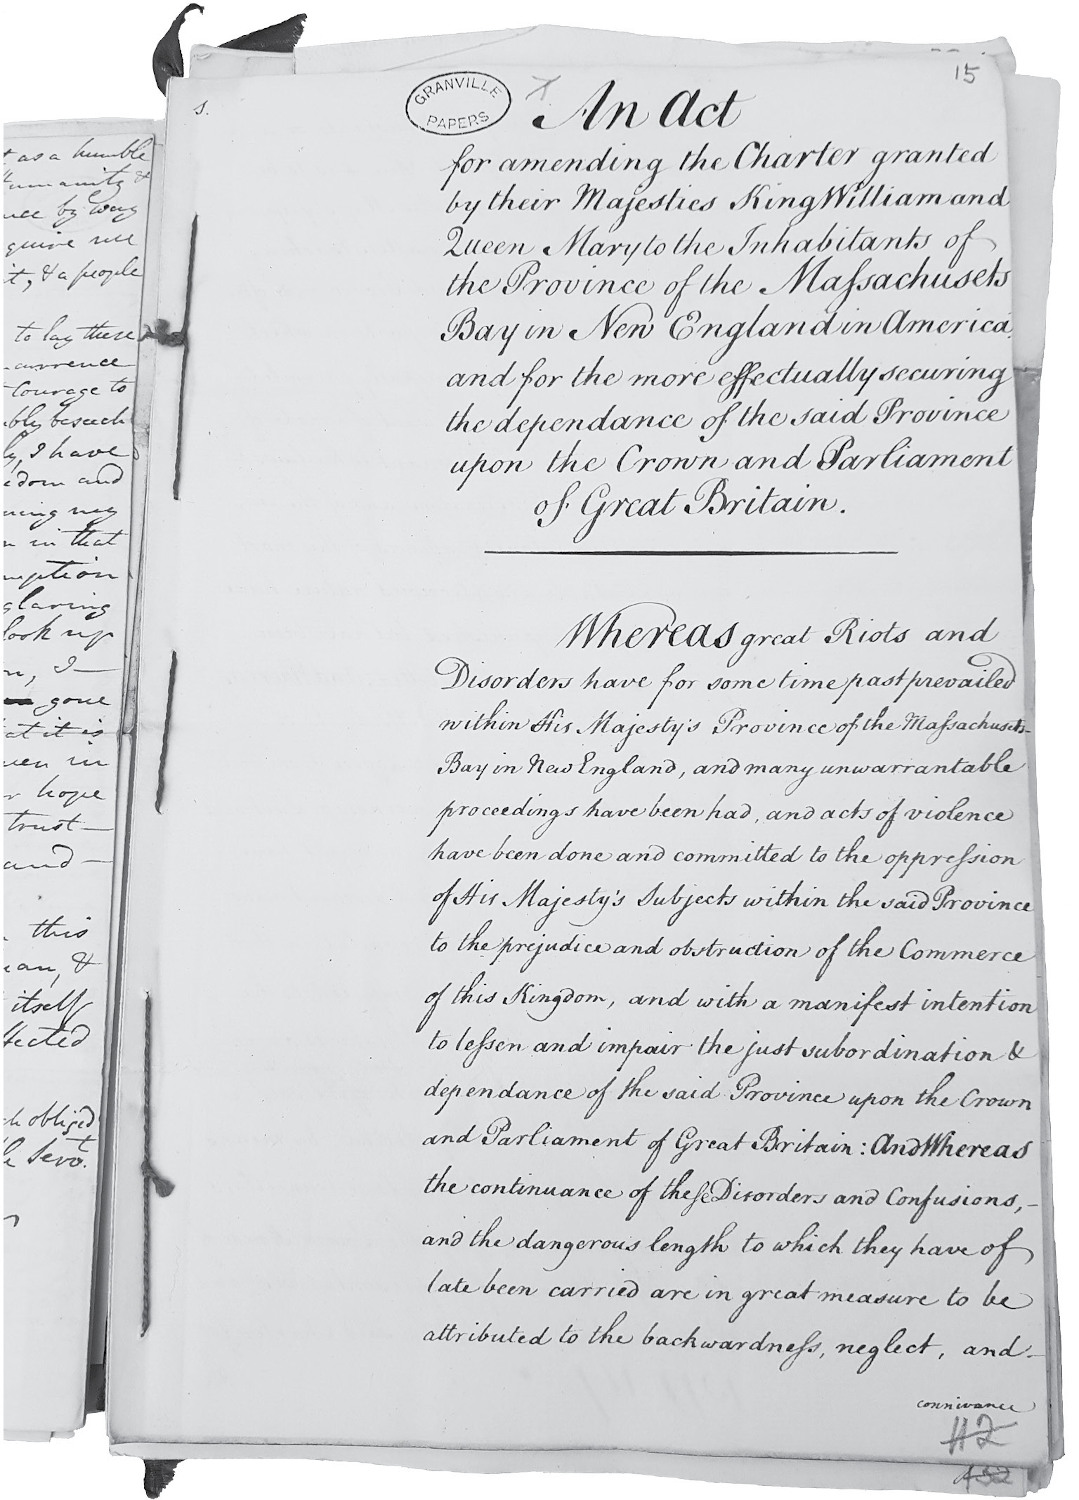 t as a humble
by way
quire me
it, & a people
to lay these
Courage to
I have
and
in that
glaring
look up
I—
gone
at it is
in
hope
trust—
and—
this
&
itself
obliged
servt.
s.
GRANVILLE
PAPERS
15
An Act
for amending the Charter granted
by their Majesties King William and
Queen Mary to the Inhabitants of
the Province of the Maſsachusets
Bay in New England in America.
and for the more effectually securing
the dependance of the said Province
upon the Crown and Parliament
of Great Britain.
Whereas great Riots and
Disorders have for some time past prevailed
within His Majesty's Province of the Maſsachusets-
Bay in New England, and many unwarrantable
proceedings have been had, and acts of violence
have been done and committed to the oppreſsion
of His Majesty's Subjects within the said Province
to the prejudice and obstruction of the Commerce
of this Kingdom, and with a manifest intention
to leſsen and impair the just subordination &
dependance of the said Province upon the Crown
and Parliament of Great Britain: And Whereas
the continuance of theſe Disorders and Confusions,-
and the dangerous length to which they have of
late been carried are in great measure to be
attributed to the backwardneſs, neglect, and-
connivance
112